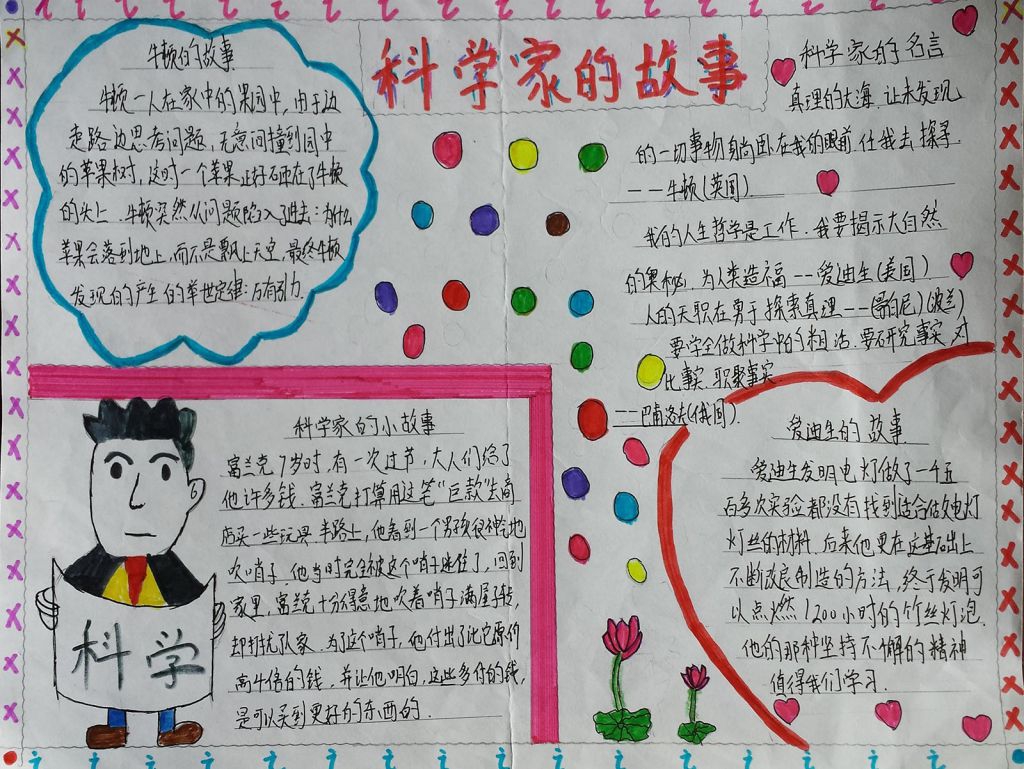 科学家的故事
牛顿的故事
牛顿一人在家中的果园中,由于边
走路边思考问题,无意间撞到园中
的苹果树,这时一个苹果正好砸在了牛顿
的头上.牛顿突然从问题陷入了进去:为什么
苹果会落到地上,而不是飘上天空,最终牛顿
发现的产生的举世定律:万有引力.
科学家的名言
真理的大海,让未发现
的一切事物躺卧在我的眼前,任我去探寻.
——牛顿(英国)
我的人生哲学是工作,我要揭示大自然
的奥秘,为人类造福——爱迪生(美国)
人的天职在勇于探索真理——(哥白尼)(波兰)
要学会做科学中的粗活.要研究事实,对
比事实,积聚事实
——巴甫洛夫(俄国).
科学家的小故事
富兰克7岁时,有一次过节,大人们给了
他许多钱.富兰克打算用这笔“巨款”去商
店买一些玩具.半路上,他看到一个男孩很神气地
吹哨子.他当时完全被这个哨子迷住了,回到
家里,富兰克十分得意地吹着哨子满屋子转,
却打扰了家.为了这个哨子,他付出了比它原价
高牛倍的钱,并让他明白,这些多付的钱,
是可以买到更好的东西的.
科学
爱迪生的故事
爱迪生发明电灯做了一千五
百多次实验都没有找到适合做电灯
灯丝的材料,后来他更在这基础上
不断改良制造的方法,终于发明可
以点燃1200小时的竹丝灯泡.
他的那种坚持不懈的精神
值得我们学习.